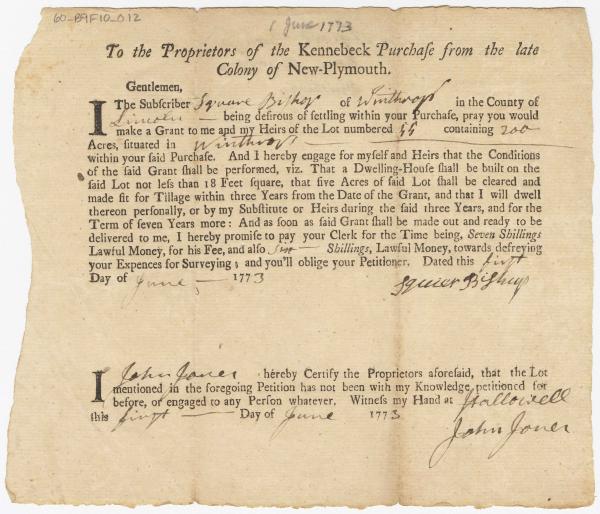 60-B9F10-012
1 June 1773
To the Proprietors of the Kennebeck Purchaſe from the late
Colony of New-Plymouth.
Gentlemen,
I The Subſcriber Square Bishop of Winthrop in the County of
Lincoln — being deſirous of ſettling within your Purchaſe, pray you would
make a Grant to me and my Heirs of the Lot numbered 55 containing 200
Acres, situated in Winthrop —
within your ſaid Purchaſe. And I hereby engage for myſelf and Heirs that the Conditions
of the ſaid Grant ſhall be performed, viz. That a Dwelling-Houſe ſhall be built on the
ſaid Lot not leſs than 18 Feet ſquare, that five Acres of ſaid Lot ſhall be cleared and
made fit for Tillage within three Years from the Date of the Grant, and that I will dwell
thereon perſonally, or by my Subſtitute or Heirs during the ſaid three Years, and for the
Term of ſeven Years more: And as ſoon as ſaid Grant ſhall be made out and ready to be
delivered to me, I hereby promiſe to pay your Clerk for the Time being, Seven Shillings
Lawful Money, for his Fee, and alſo — Shillings, Lawful Money, towards defreying
your Expences for Surveying; and you'll oblige your Petitioner. Dated this first
Day of June — 1773
Squier Bishop
I John Jones hereby Certify the Proprietors aforeſaid, that the Lot
mentioned in the foregoing Petition has not been with my Knowledge petitioned for
before, or engaged to any Perſon whatever. Witneſs my Hand at Hallowell
this first — Day of June 1773
John Jones